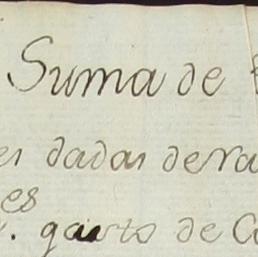 Suma de
dadas de ra
es
gasto de Ca